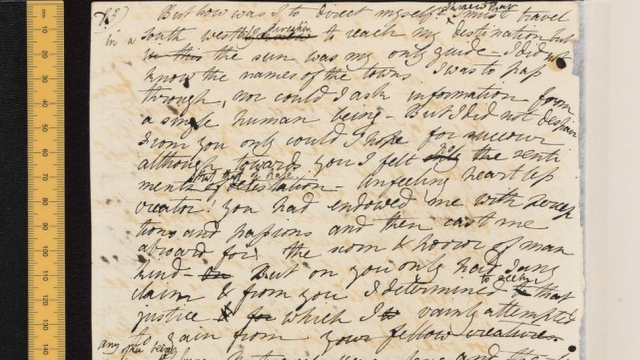 83) But how was I to direct myself I knew that I must travel
in a south westerly direction to reach my destination but
in this the sun was my only guide – I did not
know the names of the towns I was to pass
through, nor could I ask information from
a single human being – But I did not despair
From you only could I hope for succour
although towards you I felt no the senti
ments that of hate of detestation – unfeeling heartless
creator! you had endowed me with percep
tions and passions and then cast me
abroad for the scorn & horror of man
kind – But on you only had I any
claim & from you I determined to seek that
justice which I vainly attempted
to gain from your fellow creatures
any other being
mm 10 20 30 40 50 60 70 80 90 100 110 120 130 140